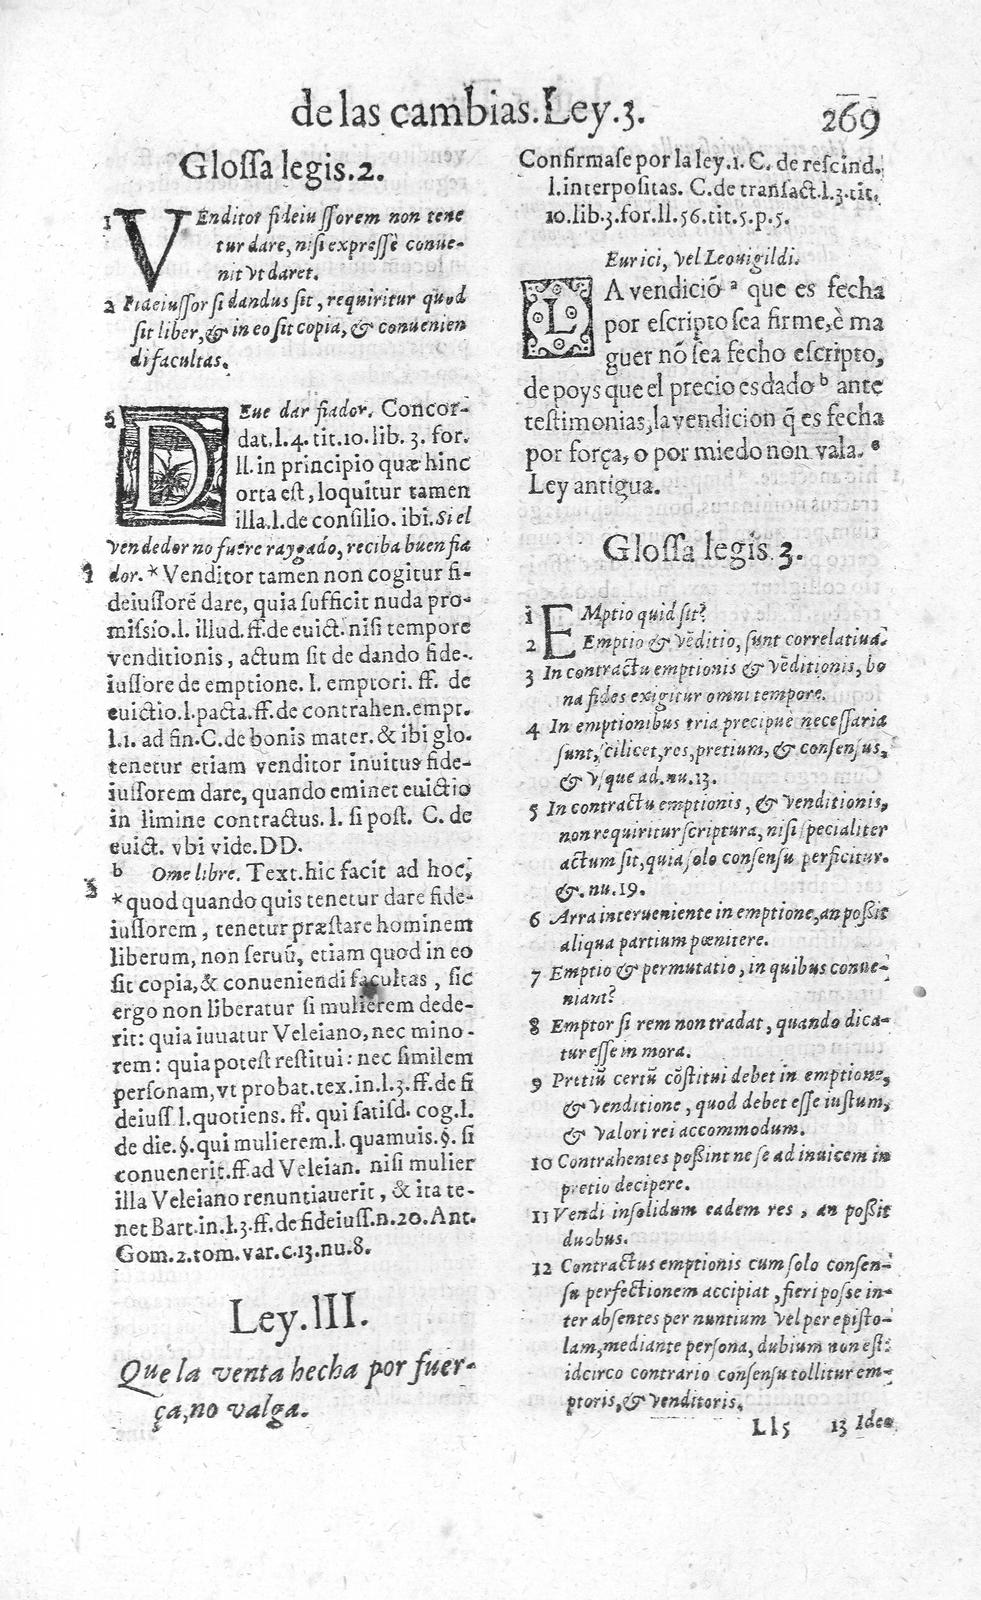 de las cambias. Ley. 3.
269
Glossa legis. 2.
1 VEnditor fideiussorem non tene
tur dare, nisi expressè conue-
nit vt daret.
2 Fideiussor si dandus sit, requiritur quod
sit liber, & in eo sit copia, & conuenien
di facultas.
DEue dar fiador. Concor-
dat. l. 4. tit. 10. lib. 3. for.
ll. in principio quæ hinc
orta est, loquitur tamen
illa. l. de consilio. ibi. Si el
vendedor no fuere raygado, reciba buen fia
dor. * Venditor tamen non cogitur fi-
deiussorē dare, quia sufficit nuda pro-
missio. l. illud. ff. de euict. nisi tempore
venditionis, actum sit de dando fide-
iussore de emptione. l. emptori. ff. de
euictio. l. pacta. ff. de contrahen. empt.
l. 1. ad fin. C. de bonis mater. & ibi glo.
tenetur etiam venditor inuitus fide-
iussorem dare, quando eminet euictio
in limine contractus. l. si post. C. de
euict. vbi vide. DD.
b Ome libre. Text. hic facit ad hoc,
* quod quando quis tenetur dare fide-
iussorem, tenetur præstare hominem
liberum, non seruū, etiam quod in eo
sit copia, & conueniendi facultas, sic
ergo non liberatur si mulierem dede-
rit: quia iuuatur Veleiano, nec mino-
rem: quia potest restitui: nec similem
personam, vt probat. tex. in. l. 3. ff. de fi
deiuss l. quotiens. ff. qui satisd. cog. l.
de die. §. qui mulierem. l. quamuis. §. si
conuenerit. ff. ad Veleian. nisi mulier
illa Veleiano renuntiauerit, & ita te-
net Bart. in. l. 3. ff. de fideiuss. n. 20. Ant.
Gom. 2. tom. var. c. 13. nu. 8.
Ley. III.
Que la venta hecha por fuer-
ça, no valga.
Confirmase por la ley. 1. C. de rescind.
l. interpositas. C. de transact. l. 3. tit.
10. lib. 3. for. ll. 56. tit. 5. p. 5.
Eurici, vel Leouigildi.
LA vendiciō a que es fecha
por escripto sea firme, è ma
guer nō sea fecho escripto,
de poys que el precio es dado b ante
testimonias, la vendicion q̃ es fecha
por força, o por miedo non vala. c
Ley antigua.
Glossa legis 3.
1 EMptio quid sit?
2 Emptio & vēditio, sunt correlatiua.
3 In contractu emptionis & vēditionis, bo
na fides exigitur omni tempore.
4 In emptionibus tria precipuè necessaria
sunt, scilicet, res, pretium, & consensus,
& vsque ad. nu. 13.
5 In contractu emptionis, & venditionis,
non requiritur scriptura, nisi specialiter
actum sit, quia solo consensu perficitur.
&. nu. 19.
6 Arra interueniente in emptione, an possit
aliqua partium pœnitere.
7 Emptio & permutatio, in quibus conue-
niant?
8 Emptor si rem non tradat, quando dica-
tur esse in mora.
9 Pretiū certū cōstitui debet in emptione,
& venditione, quod debet esse iustum,
& valori rei accommodum.
10 Contrahentes possint ne se ad inuicem in
pretio decipere.
11 Vendi insolidum eadem res, an possit
duobus.
12 Contractus emptionis cum solo consen-
su perfectionem accipiat, fieri posse in-
ter absentes per nuntium vel per episto-
lam, mediante persona, dubium non est:
idcirco contrario consensu tollitur em-
ptoris, & venditoris.
Ll 5 13 Idem